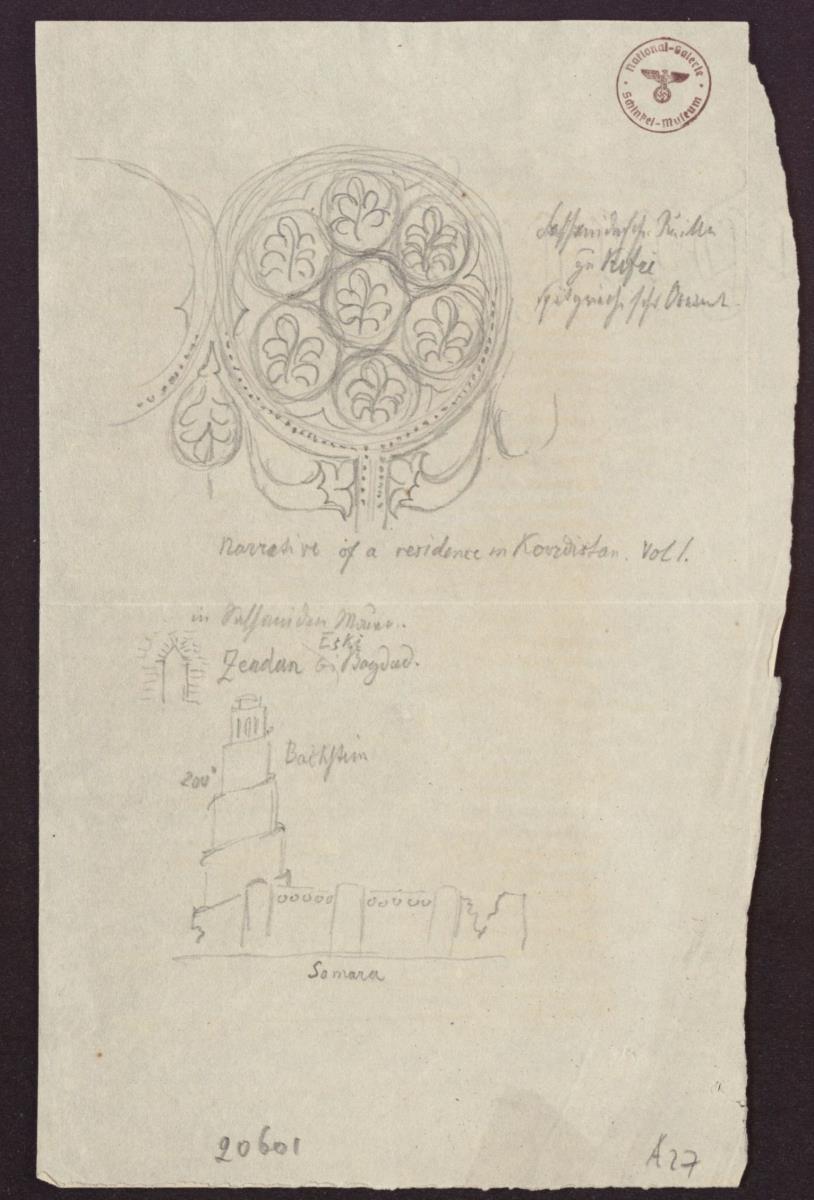 National-Galerie
Schinkel-Museum
Sassanidische Ruine
zu Kifri
spätgriechischer Ornament
Narrative of a residence in Koordistan. Vol 1.
in Sassaniden Mauer.
Eski
Zendan bei Bagdad.
Backstein
200'
Samara
20601
A 27